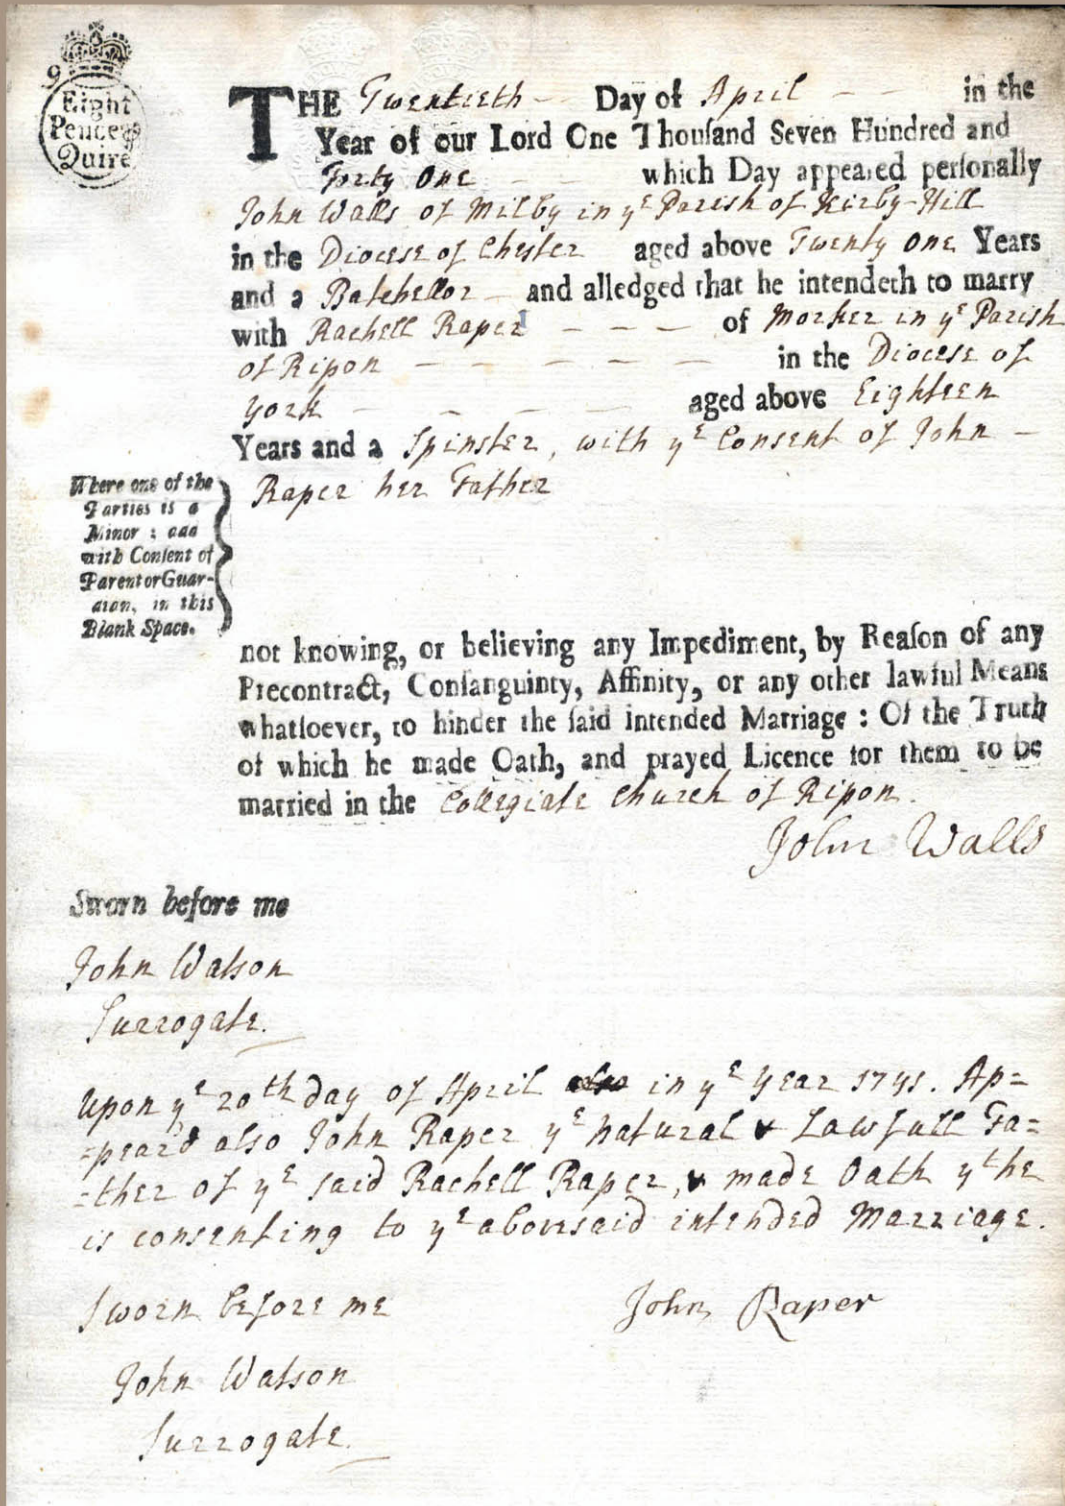 9
Eight
Pence ℔
Quire
THE Twentieth Day of April in the
Year of our Lord One Thouſand Seven Hundred and
Forty One which Day appeared perſonally
John Walls of Milby in yᵉ Parish of Kirby-Hill
in the Diocese of Chester aged above Twenty One Years
and a Batchellor and alledged that he intendeth to marry
with Rachell Raper of Morker in yᵉ Parish
of Ripon in the Diocese of
York aged above Eighteen
Years and a Spinster, with yᵉ Consent of John
Raper her Father
Where one of the
Parties is a
Minor : add
with Conſent of
Parent or Guar-
dian, in this
Blank Space.
not knowing, or believing any Impediment, by Reaſon of any
Precontract, Conſanguinty, Affinity, or any other lawful Means
whatſoever, to hinder the ſaid intended Marriage : Of the Truth
of which he made Oath, and prayed Licence for them to be
married in the Collegiate Church of Ripon.
John Walls
Sworn before me
John Watson
Surrogate.
Upon yᵉ 20th day of April in yᵉ Year 1741. Ap=
=peard also John Raper yᵉ natural & Lawfull Fa=
=ther of yᵉ said Rachell Raper, & made Oath yᵗ he
is consenting to yᵉ abovesaid intended Marriage.
Sworn before me John Raper
John Watson
Surrogate.